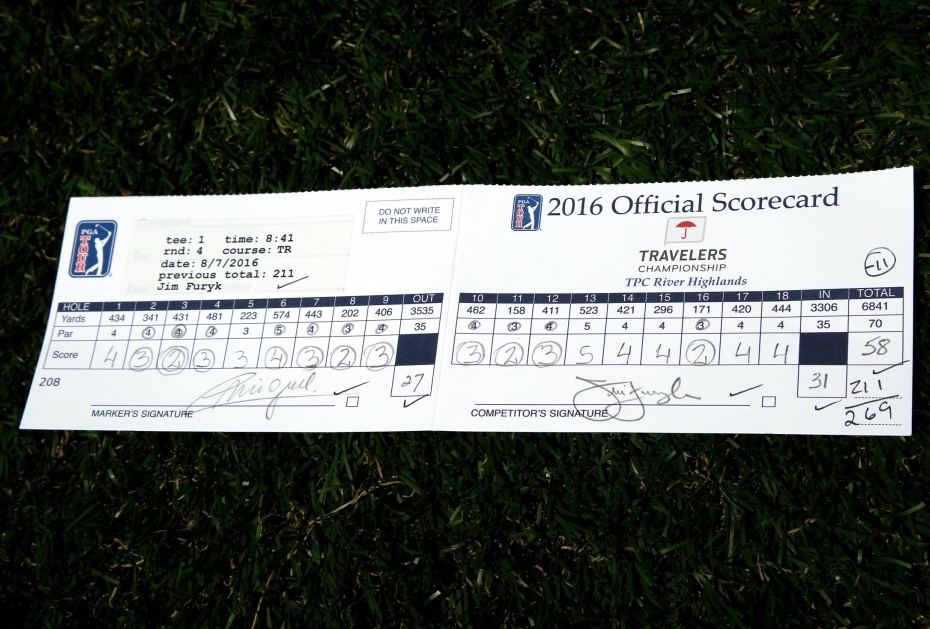 PGA TOUR
tee: 1 time: 8:41
rnd: 4 course: TR
date: 8/7/2016
previous total: 211
Jim Furyk
DO NOT WRITE
IN THIS SPACE
HOLE 1 2 3 4 5 6 7 8 9 OUT
Yards 434 341 431 481 223 574 443 202 406 3535
Par 4 4 4 4 3 5 4 3 4 35
Score 4 3 2 3 3 4 3 2 3
27
208
MARKER'S SIGNATURE
PGA TOUR
2016 Official Scorecard
TRAVELERS
CHAMPIONSHIP
TPC River Highlands
-11
10 11 12 13 14 15 16 17 18 IN TOTAL
462 158 411 523 421 296 171 420 444 3306 6841
4 3 4 5 4 4 3 4 4 35 70
3 2 3 5 4 4 2 4 4 58
31 211
269
COMPETITOR'S SIGNATURE Jim Furyk